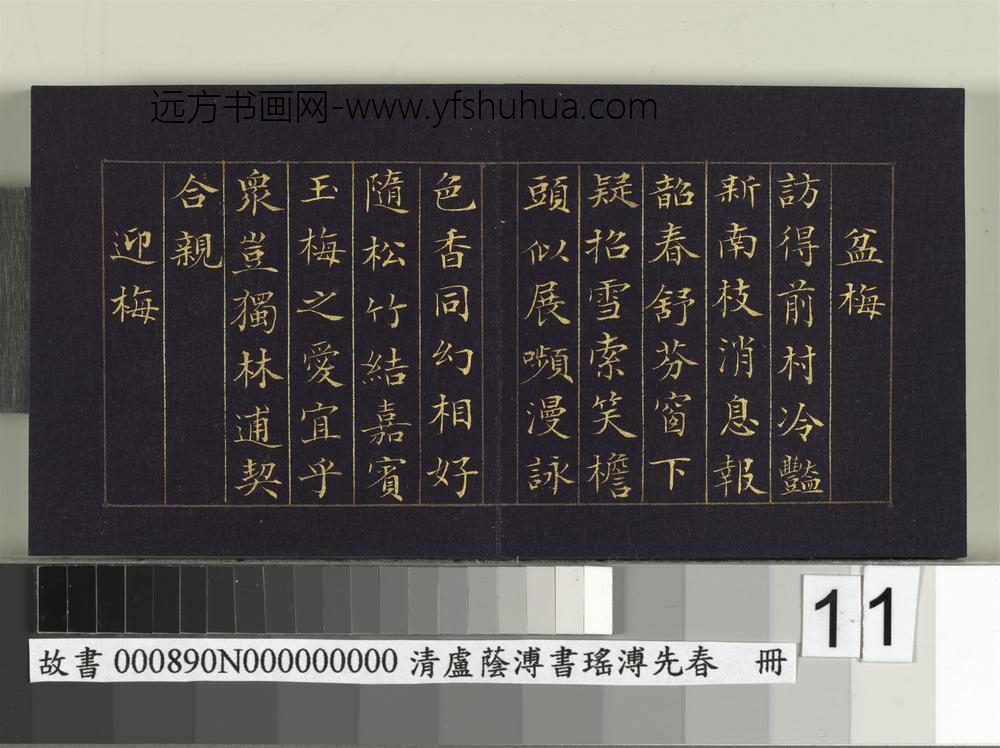 远方书画网-www.yfshuhua.com
盆梅
訪得前村冷豔
新南枝消息報
韶春舒芬窗下
疑招雪索笑檐
頭似展嚬漫詠
色香同幻相好
隨松竹結嘉賓
玉梅之愛宜乎
衆豈獨林逋契
合親
迎梅
11
故書 000890N000000000 清盧蔭溥書瑤溥先春 冊